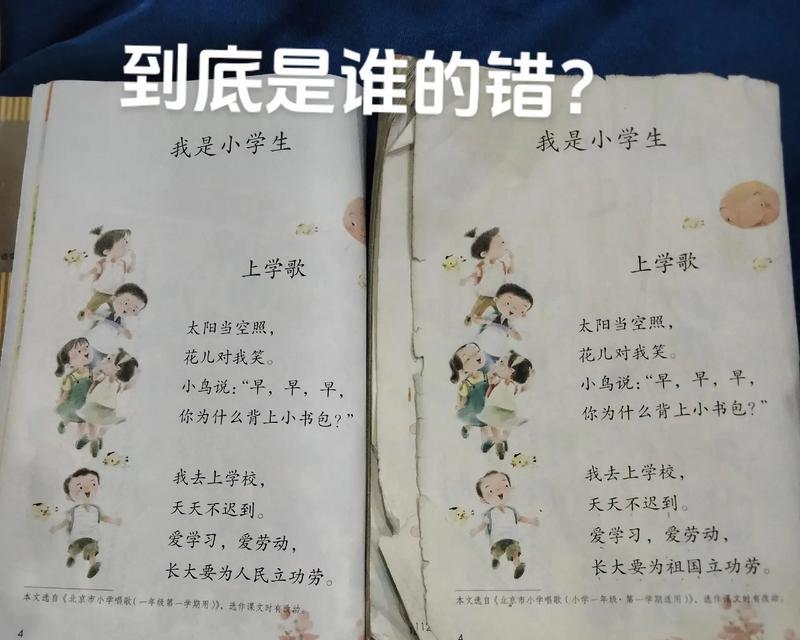 到底是谁的错？
我是小学生
上学歌
太阳当空照，
花儿对我笑。
小鸟说：“早，早，早，
你为什么背上小书包？”
我去上学校，
天天不迟到。
爱学习，爱劳动，
长大要为人民立功劳。
本文选自《北京市小学唱歌（一年级第一学期用）》，选作课文时有改动。
4
我是小学生
上学歌
太阳当空照，
花儿对我笑。
小鸟说：“早，早，早，
你为什么背上小书包？”
我去上学校，
天天不迟到。
爱学习，爱劳动，
长大要为祖国立功劳。
本文选自《北京市小学唱歌（小学一年级·第一学期适用）》，选作课文时有改动。
112
4